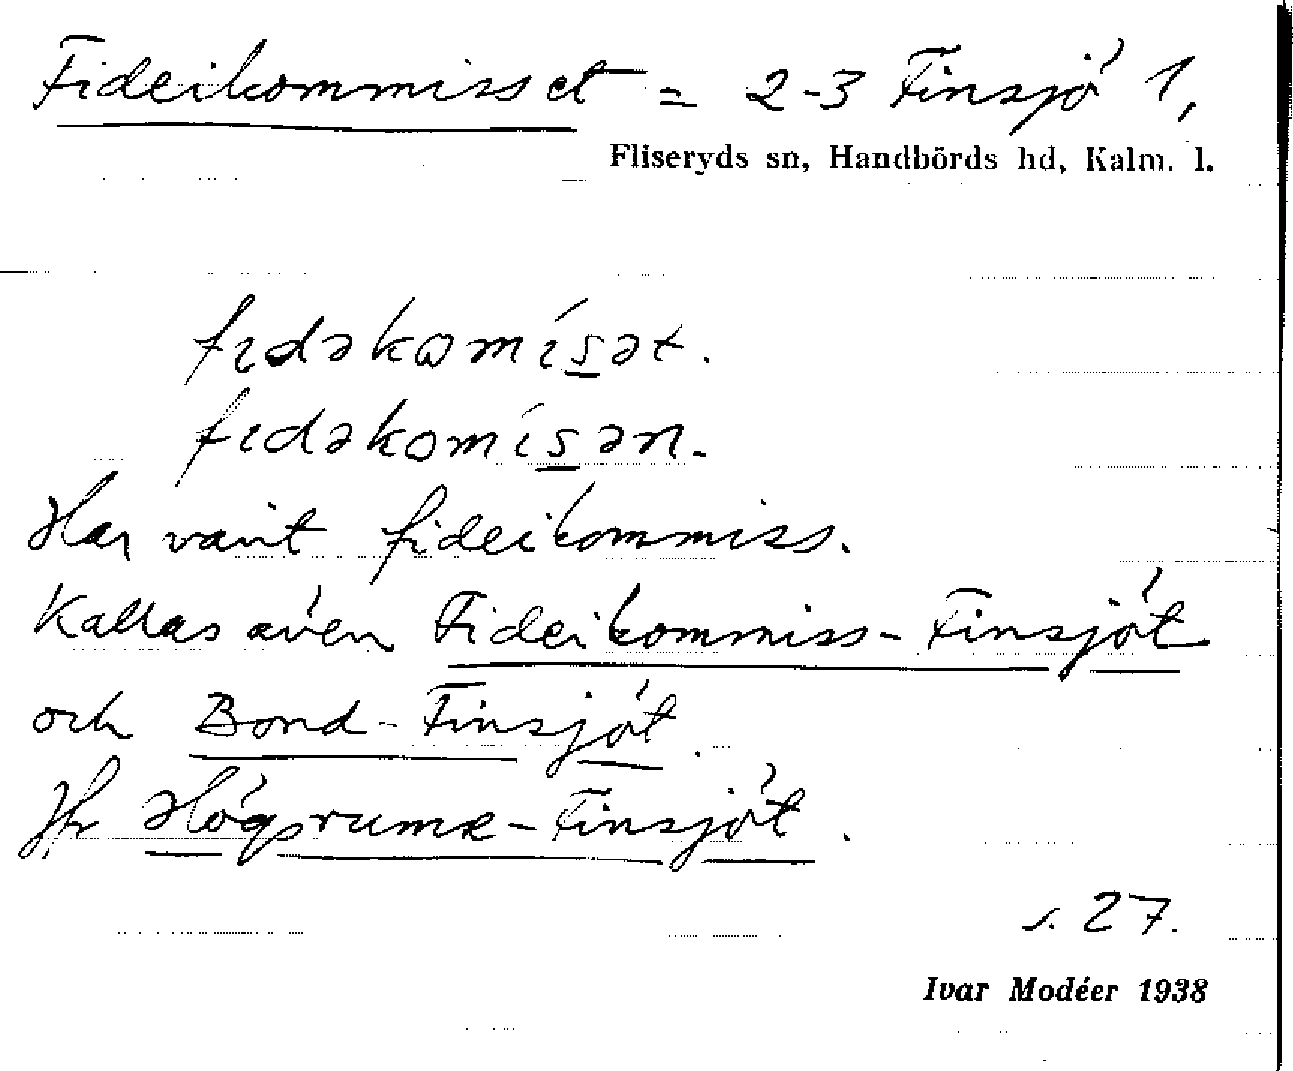 Fideikommisset = 2-3 Finsjö 1,
Fliseryds sn, Handbörds hd, Kalm. l.
fɪdəkomísət.
fɪdəkomísən.
Har varit fideikommiss.
Kallas även Fideikommiss-Finsjöt
och Bond-Finsjöt.
Jfr Högsrums-Finsjöt.
s. 27.
Ivar Modéer 1938